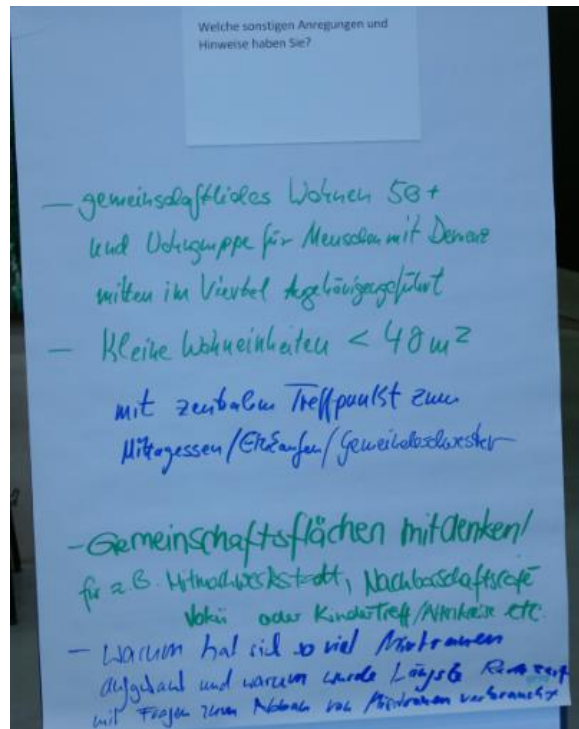 Welche sonstigen Anregungen und
Hinweise haben Sie?
– gemeinschaftliches Wohnen 50+
und Wohngruppe für Menschen mit Demenz
mitten im Viertel Angehörigengeführt
– Kleine Wohneinheiten < 40 m²
mit zentralem Treffpunkt zum
Mittagessen/Einkaufen/Gemeindeschwester
– Gemeinschaftsflächen mitdenken!
für z.B. Mitmachwerkstadt, Nachbarschaftscafé
oder Kindertreff/ etc.
– Warum hat sich so viel Misstrauen
aufgebaut und warum wurde Längste
mit Fragen zum von Misstrauen verbraucht